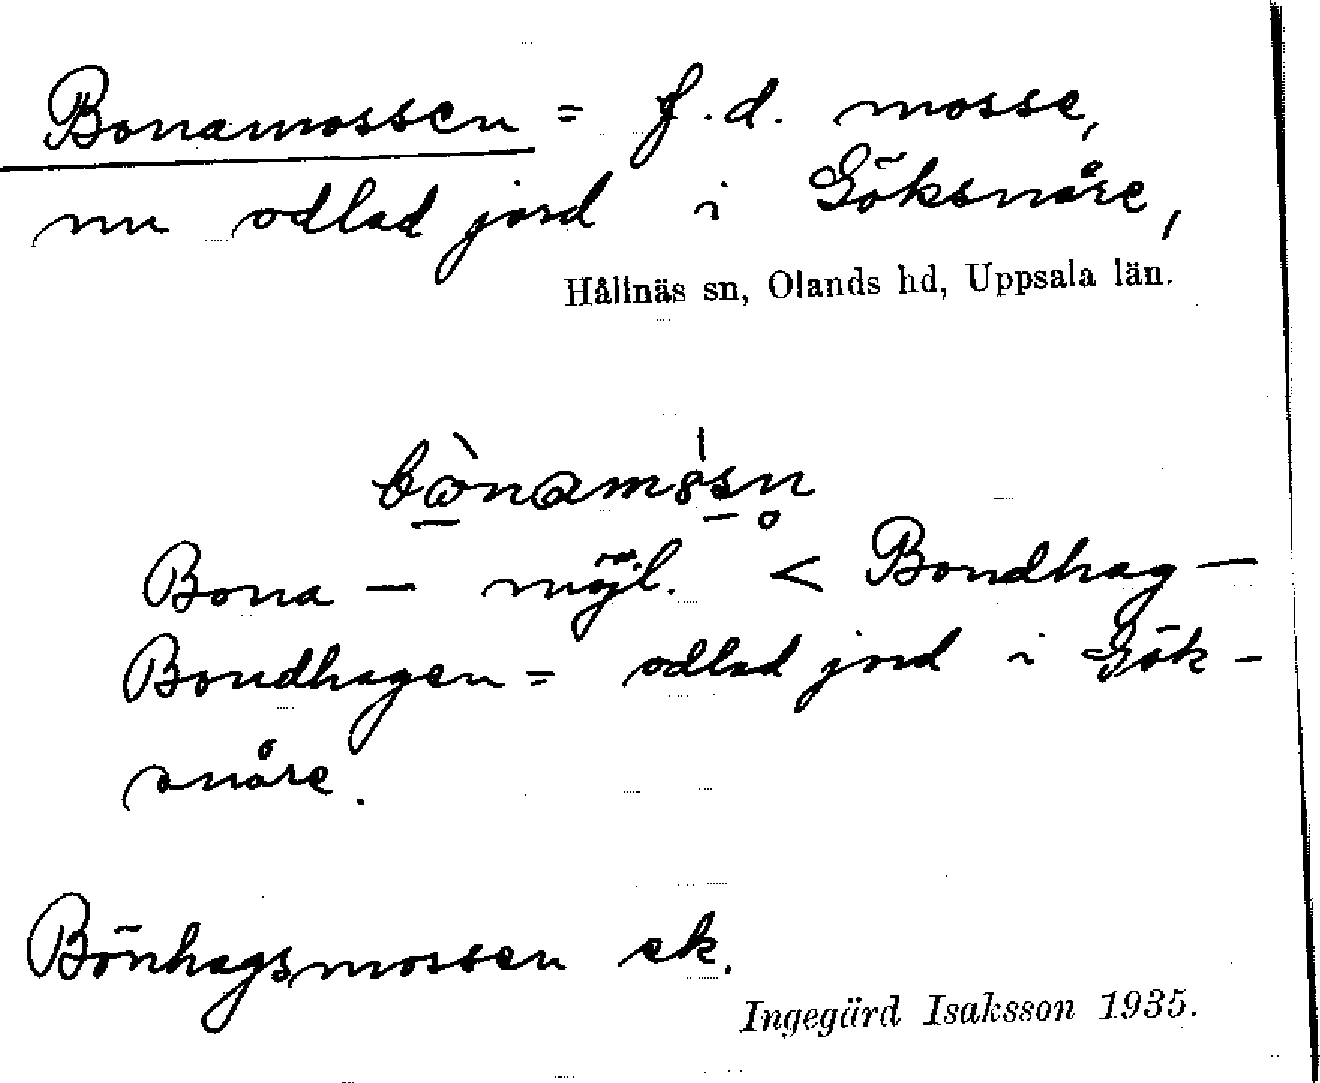 Bonamossen = f.d. mosse,
nu odlad jord i Göksnåre,
Hållnäs sn, Olands hd, Uppsala län.
Bona – möjl. < Bondhag –
Bondhagen = odlad jord i Gök-
snåre.
Bönhagsmossen ek.
Ingegärd Isaksson 1935.